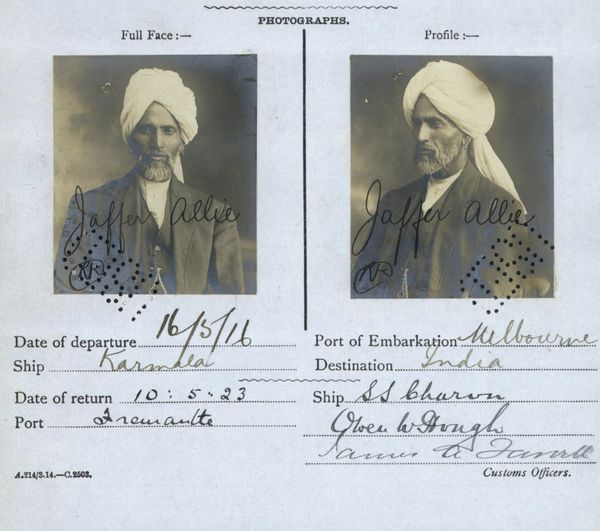 PHOTOGRAPHS.
Full Face :—
Profile :—
Jaffer Allie
Jaffer Allie
Date of departure 16/5/16
Port of Embarkation Melbourne
Ship Karmala
Destination India
Date of return 10 : 5 - 23
Ship SS Charon
Port Fremantle
Owen W Hough
James A
Customs Officers.
A.214/3.14.—C.2503.